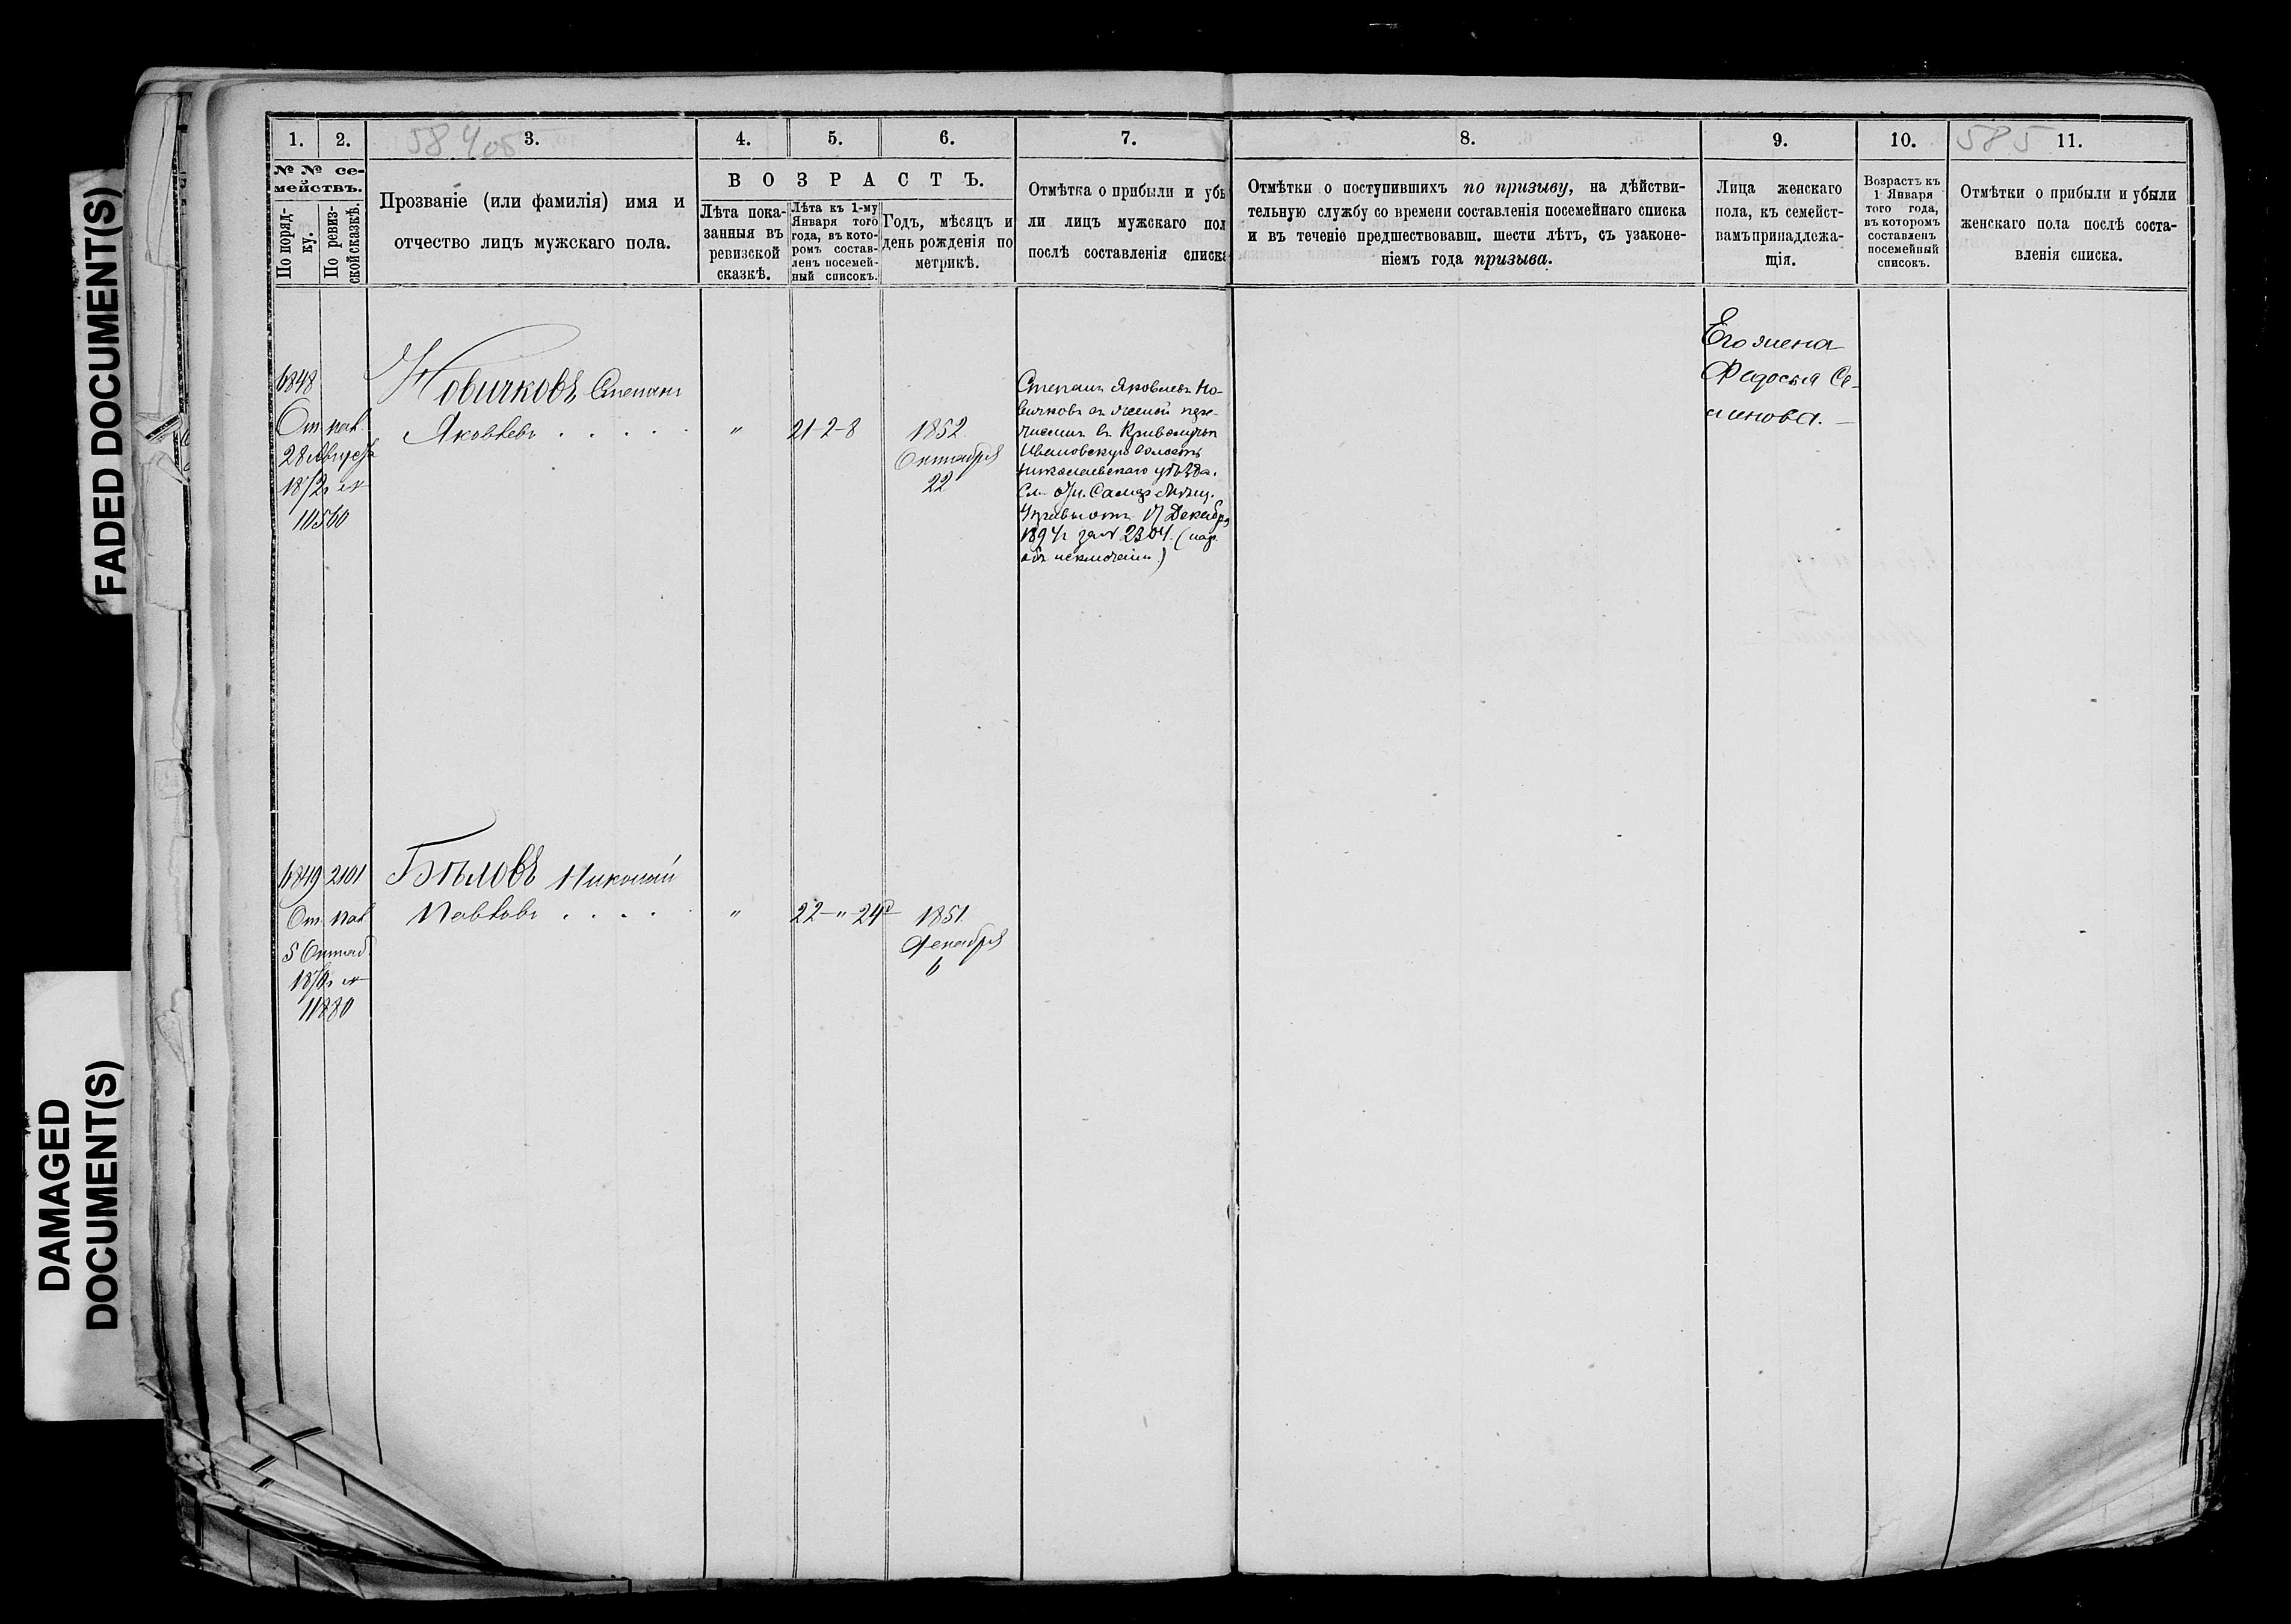 FADED DOCUMENT(S)
DAMAGED
DOCUMENT(S)
584 об
585
1.
2.
3.
4.
5.
6.
7.
8.
9.
10.
11.
№ № се-
мействъ.
По поряд-
ку.
По ревиз-
ской сказкѣ.
Прозваніе (или фамилія) имя и
отчество лицъ мужскаго пола.
ВОЗРАСТЪ.
Лѣта пока-
занныя въ
ревизской
сказкѣ.
Лѣта къ 1-му
Января того
года, въ кото-
ромъ состав-
ленъ посемей-
ный списокъ.
Годъ, мѣсяцъ и
день рожденія по
метрикѣ.
Отмѣтка о прибыли и убы
ли лицъ мужскаго пол
послѣ составленія списка
Отмѣтки о поступившихъ по призыву, на дѣйстви-
тельную службу со времени составленія посемейнаго списка
и въ теченіе предшествовавш. шести лѣтъ, съ узаконе-
ніемъ года призыва.
Лица женскаго
пола, къ семейст-
вамъ принадлежа-
щія.
Возрастъ къ
1 Января
того года,
въ которомъ
составленъ
посемейный
списокъ.
Отмѣтки о прибыли и убыли
женскаго пола послѣ соста-
вленія списка.
6848
От. пал.
28 Августа
1872 г №
10560
Новичковъ Степанъ
Яковлевъ . . . . .
"
21-2-8
1852
Октября
22
Степанъ Яковлевъ Но-
вичковъ съ женой пере-
численъ въ
Ивановскую волость
Николаевскаго уѣзда.
Самар.
Декабря
1894 г за № 2304. (
объ исключеніи)
Его жена
Федосья Се-
менова. —
6849 2101
От. пал.
5 Октяб.
№
11880
Бѣловъ Николай
Павловъ . . . . .
"
22-"-24
1851
Декабря
6